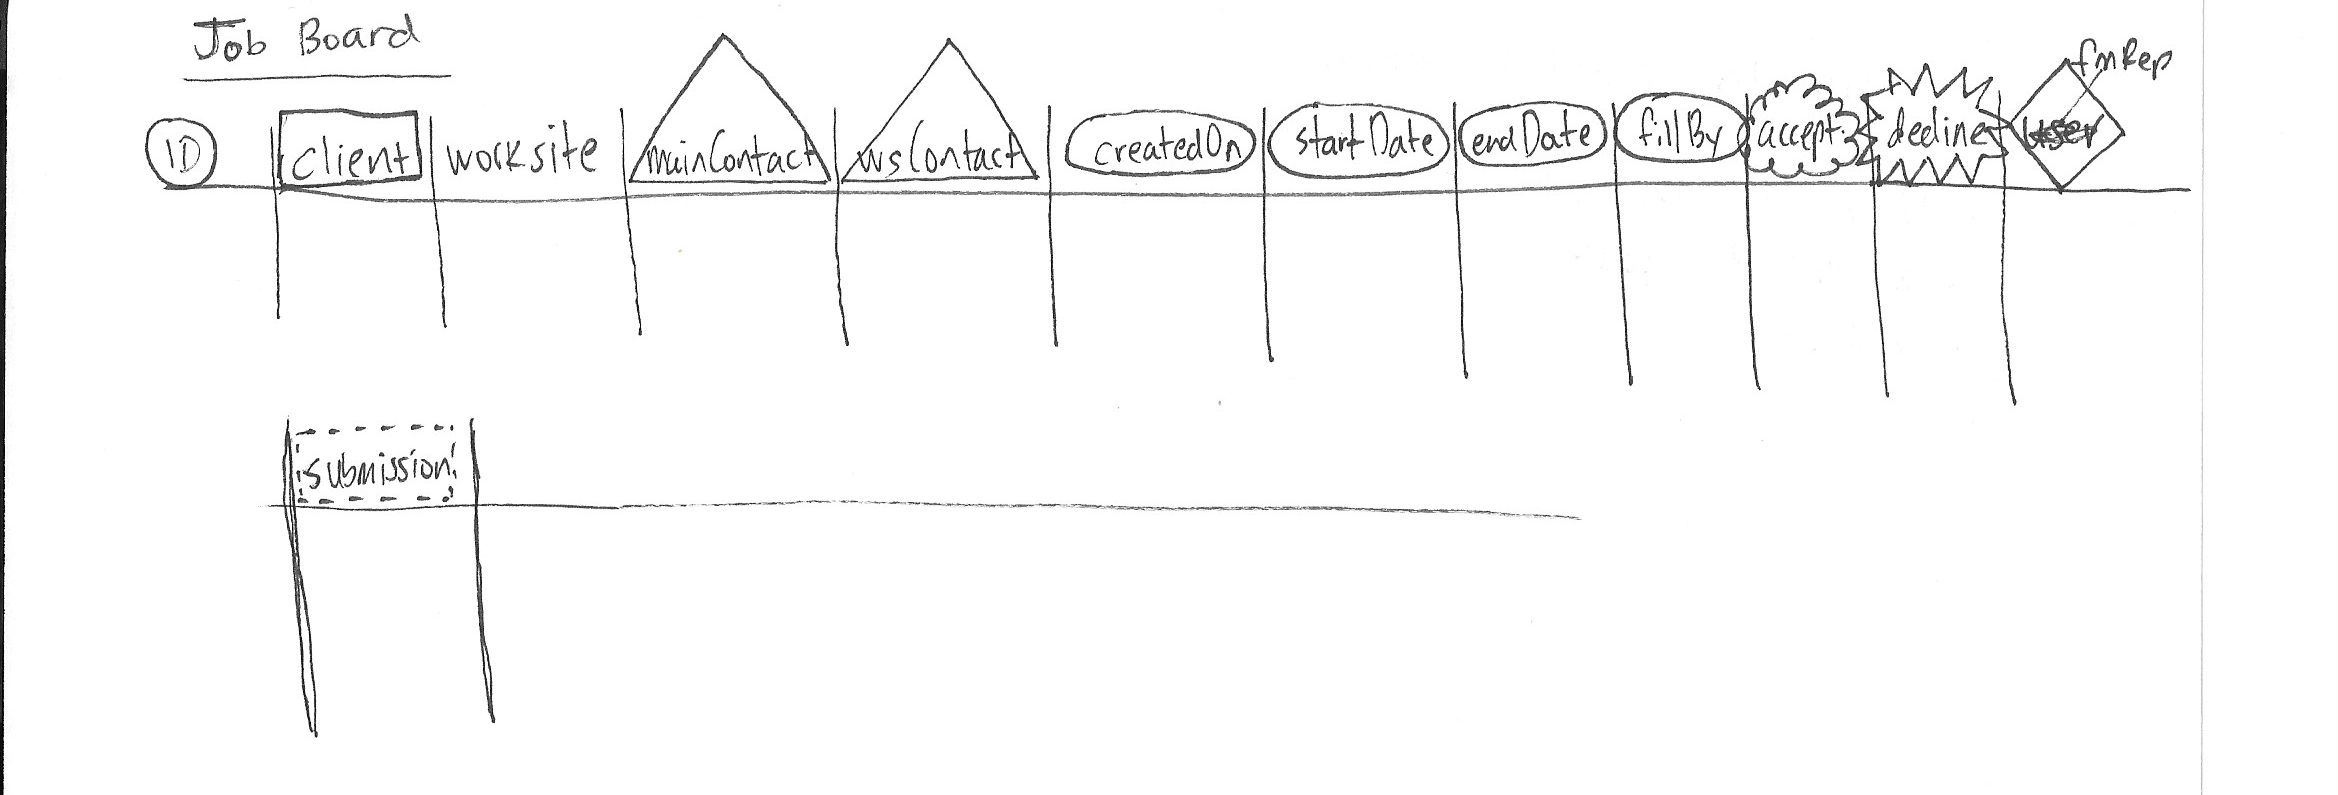 Job Board
fmRep
ID client worksite mainContact wsContact createdOn startDate endDate fillBy accept decline user
submission